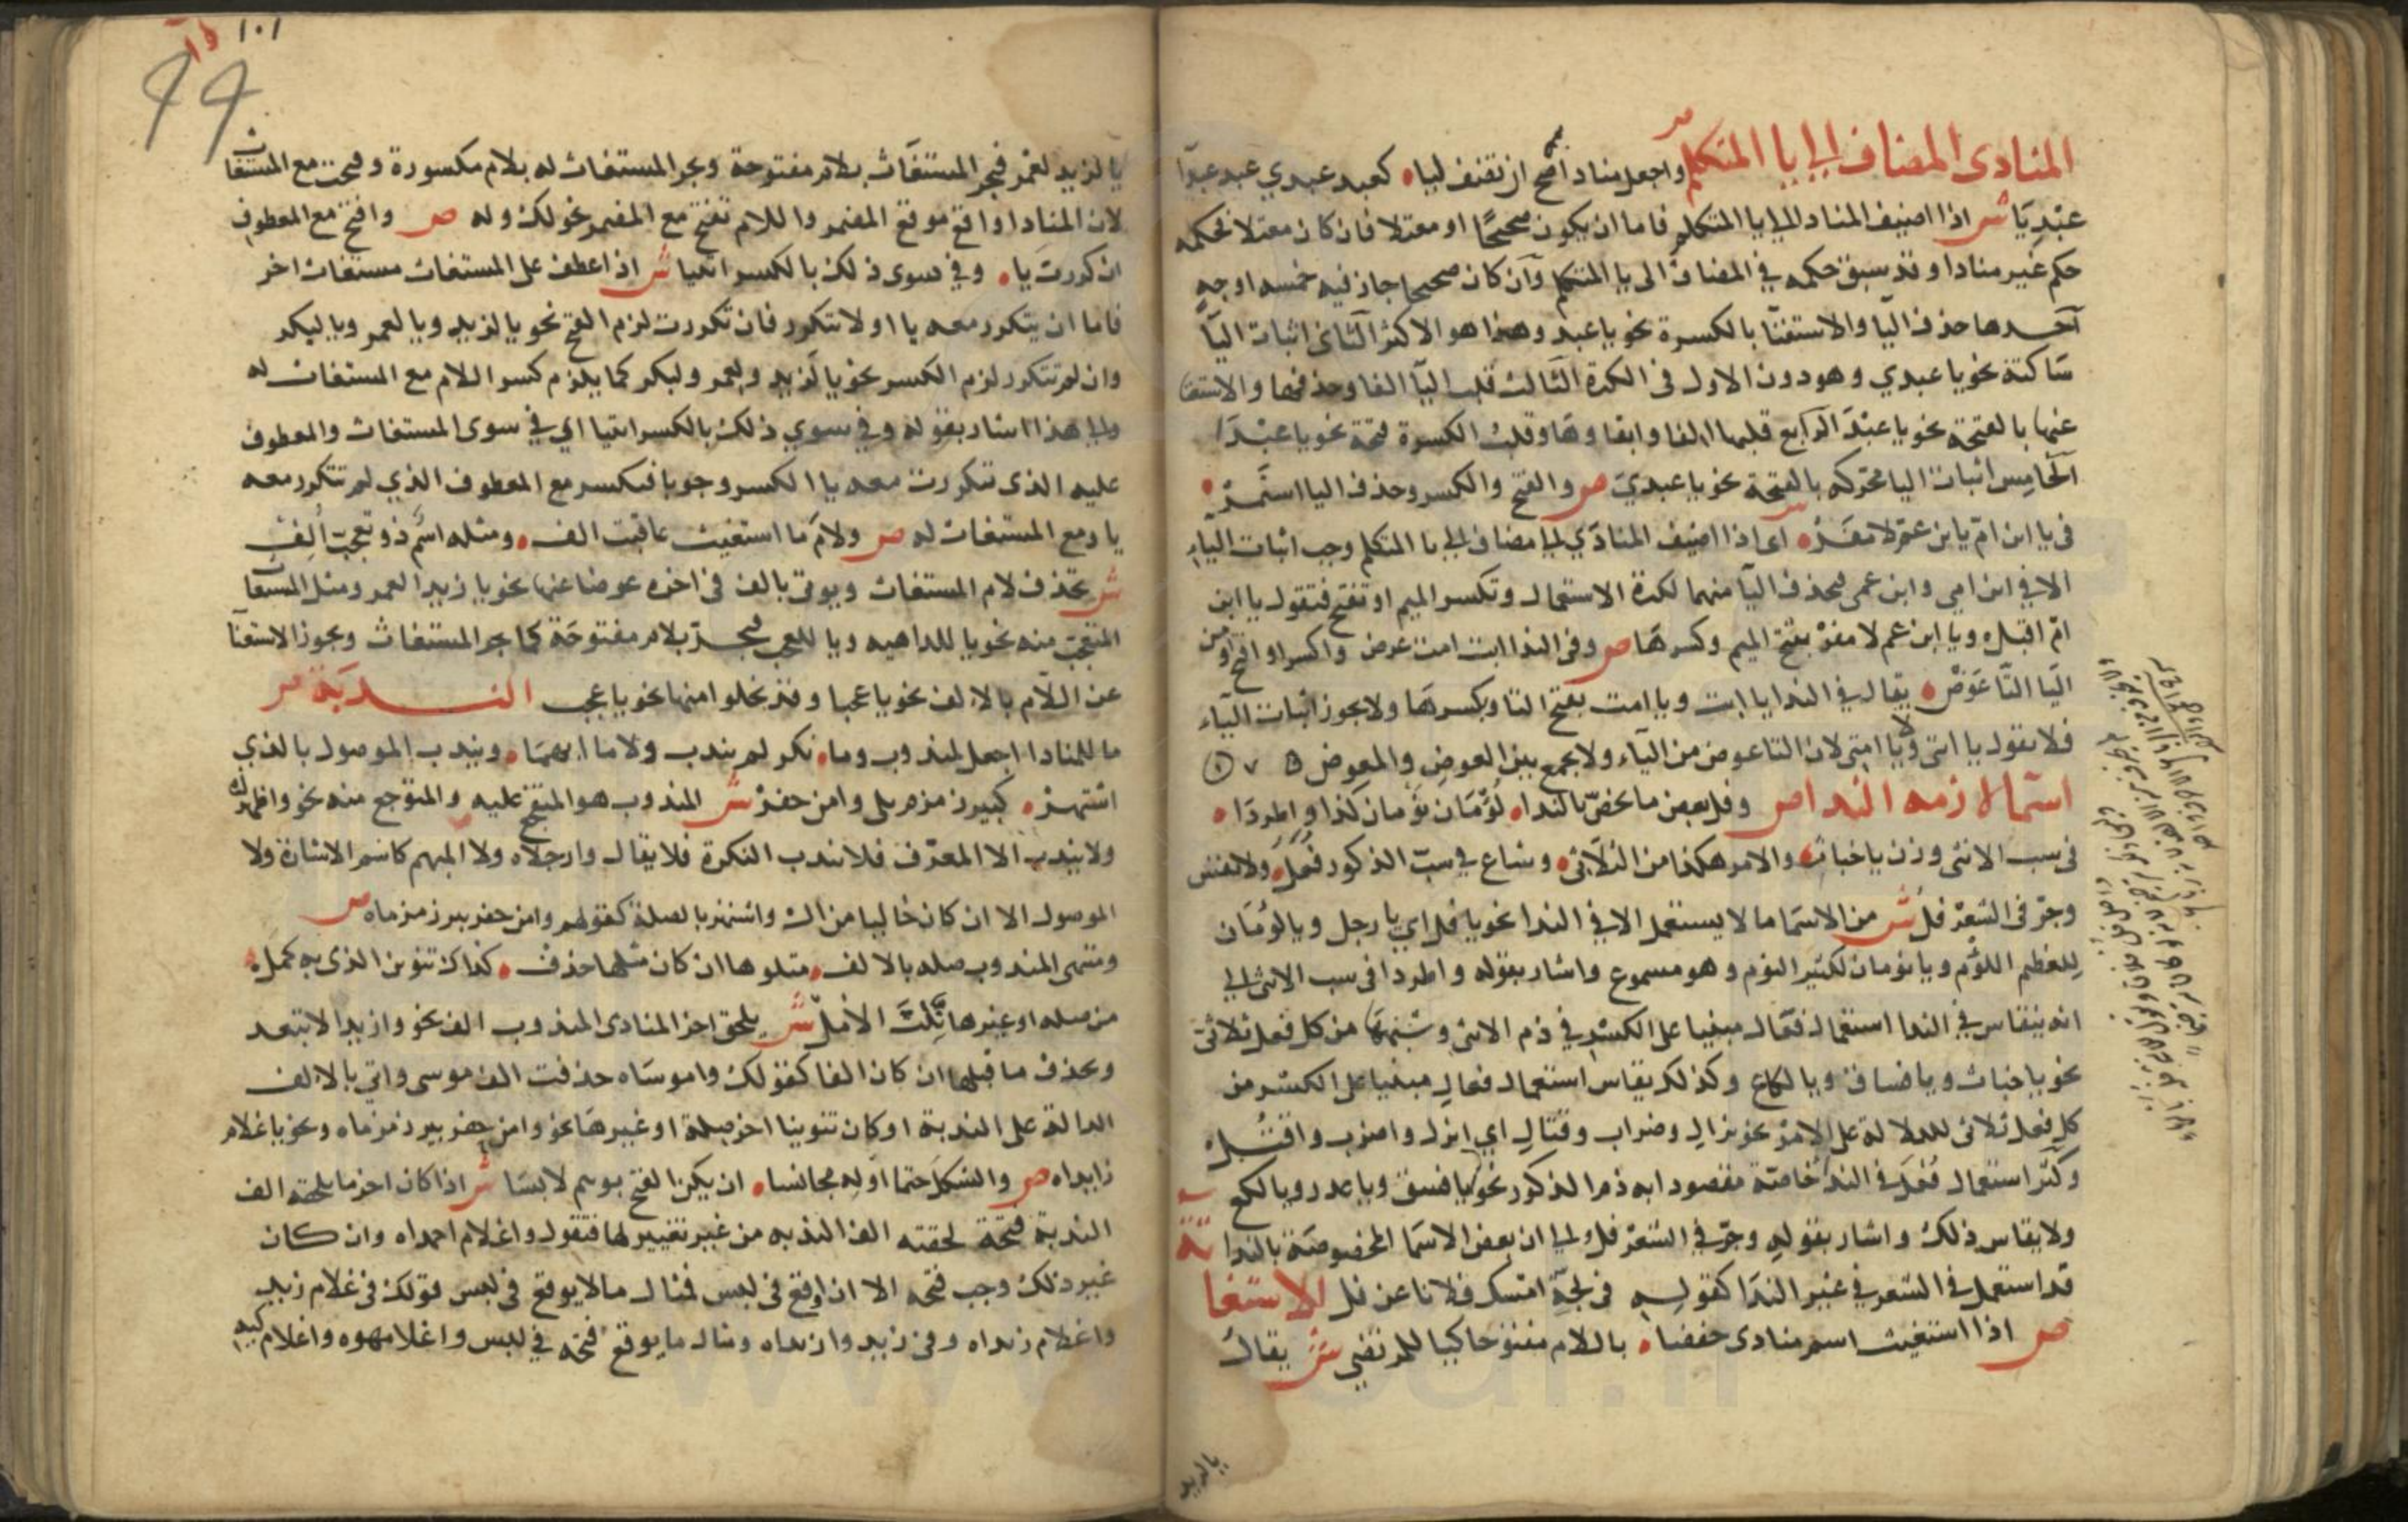 المنادى المضاف الى يا المتكلم ص واجعل منادا صح ان تضف ليا كعبد عبدي عبد عبدا
عبديا ش اذا اضيف المنادا الى يا المتكلم فاما ان يكون صحيحا او معتلا فان كان معتلا فحكمه
حكم غير منادا وقد سبق حكمه في المضاف الى يا المتكلم وان كان صحيحا جاز فيه خمسه اوجه
احدها حذف اليا والاستغنا بالكسرة نحو يا عبد وهذا هو الاكثر الثاني اثبات اليا
ساكنة نحو يا عبدي وهو دون الاول في الكثرة الثالث قلب اليا الفا وحذفها والاستغنا
عنها بالفتحة نحو يا عبد الرابع قلبها الفا وابقاوها وقلب الكسرة فتحة نحو يا عبدا
الخامس اثبات اليا محركه بالفتحة نحو يا عبدي ص والفتح والكسر وحذف اليا استمر
في يا ابن ام يا ابن عم لا مفر ش اى اذا اضيف المنادى الى مضاف الى يا المتكلم وجب اثبات الياء
الا في ابن امي وابن عمي فتحذف اليا منهما لكثرة الاستعمال وتكسر الميم او تفتح فتقول يا ابن
ام اقبل ويا ابن عم لا مفر بفتح الميم وكسرها ص وفي الندا ابت امت عرض واكسر او افتح ومن
اليا التا عوض يقال في الندا يا ابت ويا امت بفتح التا وبكسرها ولا يجوز اثبات الياء
فلا تقول يا ابتي ولا يا امتي لان التا عوض من الياء ولا يجمع بين العوض والمعوض
اسما لازمه الندا ص وفل بعض ما يخص بالندا لؤمان نومان كذا واطردا
في سب الانثى وزن يا خباث والامر هكذا من الثلاثي وشاع في سب الذكور فعل ولا تقس
وجر في الشعر فل ش من الاسما ما لا يستعمل الا في الندا نحو يا فل اي يا رجل ويا لؤمان
للعظيم اللؤم ويا نومان لكثير النوم وهو مسموع واشار بقوله واطردا في سب الانثى الى
انه ينقاس في الندا استعمال فعال مبنيا على الكسر في ذم الانثى وشتمها من كل فعل ثلاثي
نحو يا خباث ويا فساق ويا لكاع وكذلك يقاس استعمال فعال مبنيا على الكسر من
كل فعل ثلاثي للدلالة على الامر نحو نزال وضراب وقتال اي انزل واضرب واقتل
وكثر استعمال فعل في الندا خاصة مقصودا به ذم الذكور نحو يا فسق ويا غدر ويا لكع
ولا يقاس ذلك واشار بقوله وجر في الشعر فل الى ان بعض الاسما المخصوصة بالندا
قد استعمل في الشعر في غير الندا كقوله في لجة امسك فلانا عن فل الاستغاثة
ص اذا استغيث اسم منادى خفضا باللام مفتوحا كيا للمرتضى ش يقال
يا لزيد
١٠١
يا لزيد لعمر فيجر المستغاث بلام مفتوحة ويجر المستغاث له بلام مكسورة وفتحت مع المستغاث
لان المنادا واقع موقع المضمر واللام تفتح مع المضمر نحو لك وله ص وافتح مع المعطوف
ان كررت يا وفي سوى ذلك بالكسر ائتيا ش اذا عطف على المستغاث مستغاث اخر
فاما ان يتكرر معه يا او لا تتكرر فان تكررت لزم الفتح نحو يا لزيد ويا لعمر ويا لبكر
وان لم تتكرر لزم الكسر نحو يا لزيد ولعمر ولبكر كما يلزم كسر اللام مع المستغاث له
والى هذا اشار بقوله وفي سوي ذلك بالكسر ائتيا اي في سوى المستغاث والمعطوف
عليه الذى تكررت معه يا الكسر وجوبا فتكسر مع المعطوف الذي لم تتكرر معه
يا ومع المستغاث له ص ولام ما استغيث عاقبت الف ومثله اسم ذو تعجب الف
ش تحذف لام المستغاث ويوتى بالف في اخره عوضا عنها نحو يا زيدا لعمر ومثل المستغاث
المتعجب منه نحو يا للداهيه ويا للعجب فيجر بلام مفتوحة كما يجر المستغاث ويجوز الاستغنا
عن اللام بالالف نحو يا عجبا وقد يخلو منها نحو يا عجب الندبة ص
ما للمنادا اجعل لمندوب وما نكر لم يندب ولا ما ابهما ويندب الموصول بالذي
اشتهر كبير زمزم يلي وا من حفر ش المندوب هو المتفجع عليه والمتوجع منه نحو واظهراه
ولا يندب الا المعرف فلا تندب النكرة فلا يقال وارجلاه ولا المبهم كاسم الاشارة ولا
الموصول الا ان كان خاليا من ال واشتهر بالصلة كقولهم وا من حفر بير زمزماه ص
ومنتهى المندوب صله بالالف متلوها ان كان مثلها حذف كذاك تنوين الذى به كمل
من صله او غيرها نلت الامل ش يلحق اخر المنادى المندوب الف نحو وازيدا لا تبعد
ويحذف ما قبلها ان كان الفا كقولك واموساه حذفت الف موسى واتي بالالف
الدالة على الندبة او كان تنوينا اخر صلة او غيرها نحو وا من حفر بير زمزماه ونحو يا غلام
زيداه ص والشكل حتما اوله مجانسا ان يكن الفتح بوهم لابسا ش اذا كان اخر ما يلحقه الف
الندبة فتحة لحقته الف الندبه من غير تغيير لها فتقول واغلام احمداه وان كان
غير ذلك وجب فتحه الا ان اوقع في لبس فمثال ما لا يوقع في لبس قولك في غلام زيد
واغلام زيداه وفي زيد وازيداه ومثال ما يوقع فتحه في لبس واغلامهوه واغلامكيه